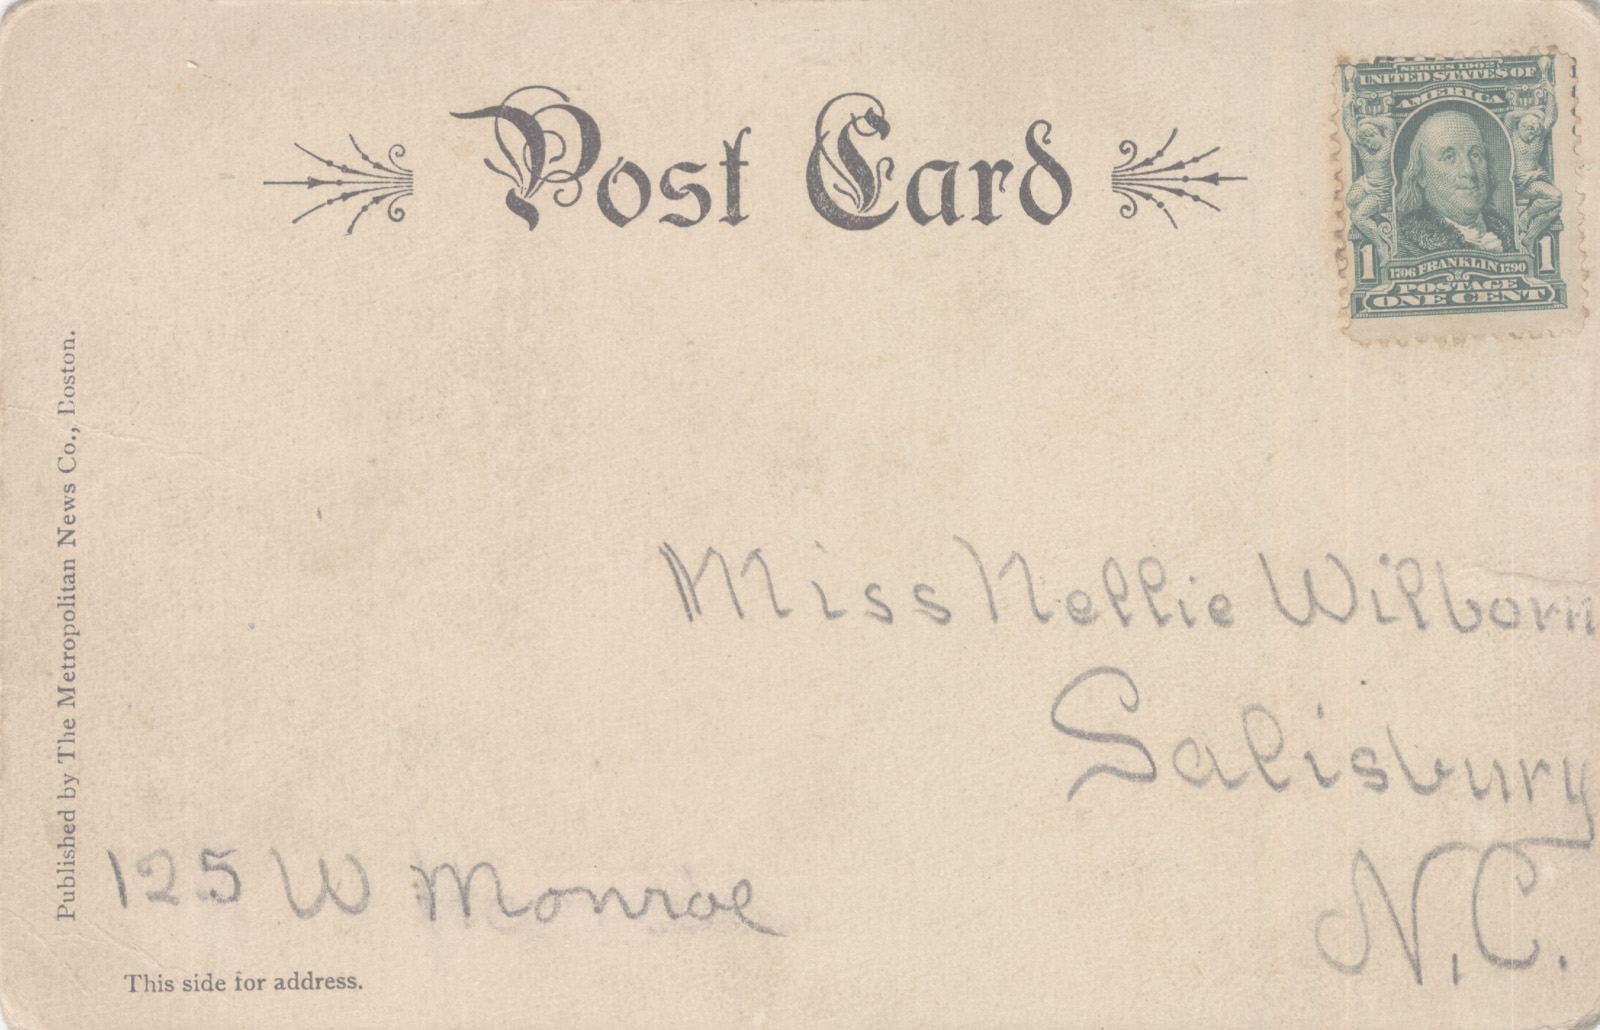 Post Card
SERIES 1902
UNITED STATES OF
AMERICA
1 1706 FRANKLIN 1790 1
POSTAGE
ONE CENT
Published by The Metropolitan News Co., Boston.
Miss Nellie Wilborn
Salisbury
N.C.
125 W Monroe
This side for address.